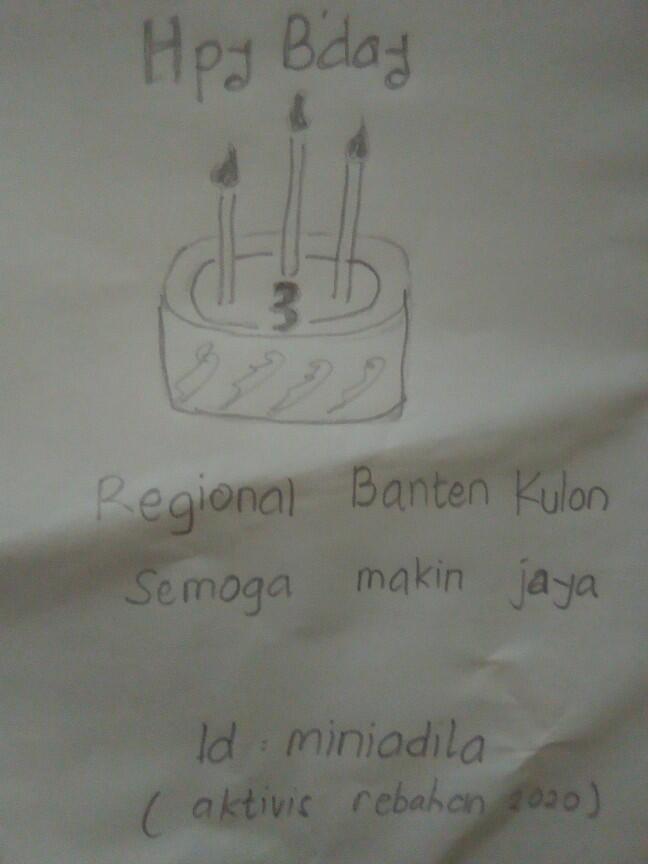 Hpy B'day
3
Regional Banten Kulon
Semoga makin jaya
Id : miniadila
( aktivis rebahan 2020 )